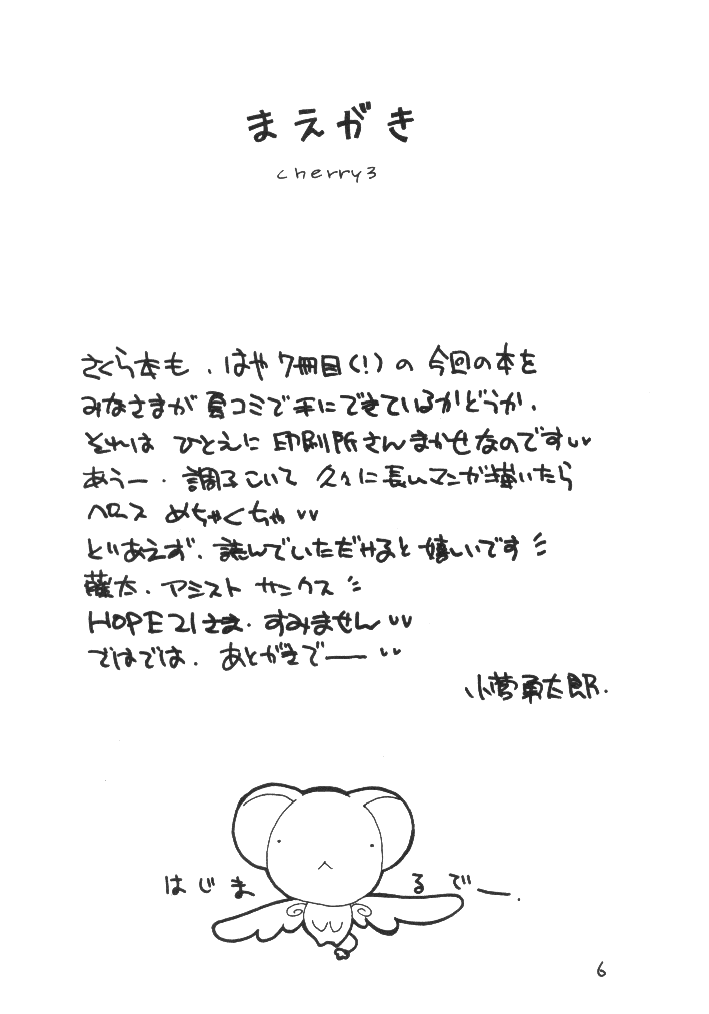 まえがき
cherry3
さくら本も、はや7冊目(!)の 今回の本を
みなさまが夏コミで手にできているかどうか、
それは ひとえに 印刷所さんまかせなのです
あうー、調子こいて 久々に長いマンガ描いたら
ペース めちゃくちゃ
とりあえず、読んでいただけると嬉しいです
藤太、アシスト サンクス
HOPE21さま、すみません
ではでは、あとがきで──
小菅勇太郎.
はじまるでー.
6